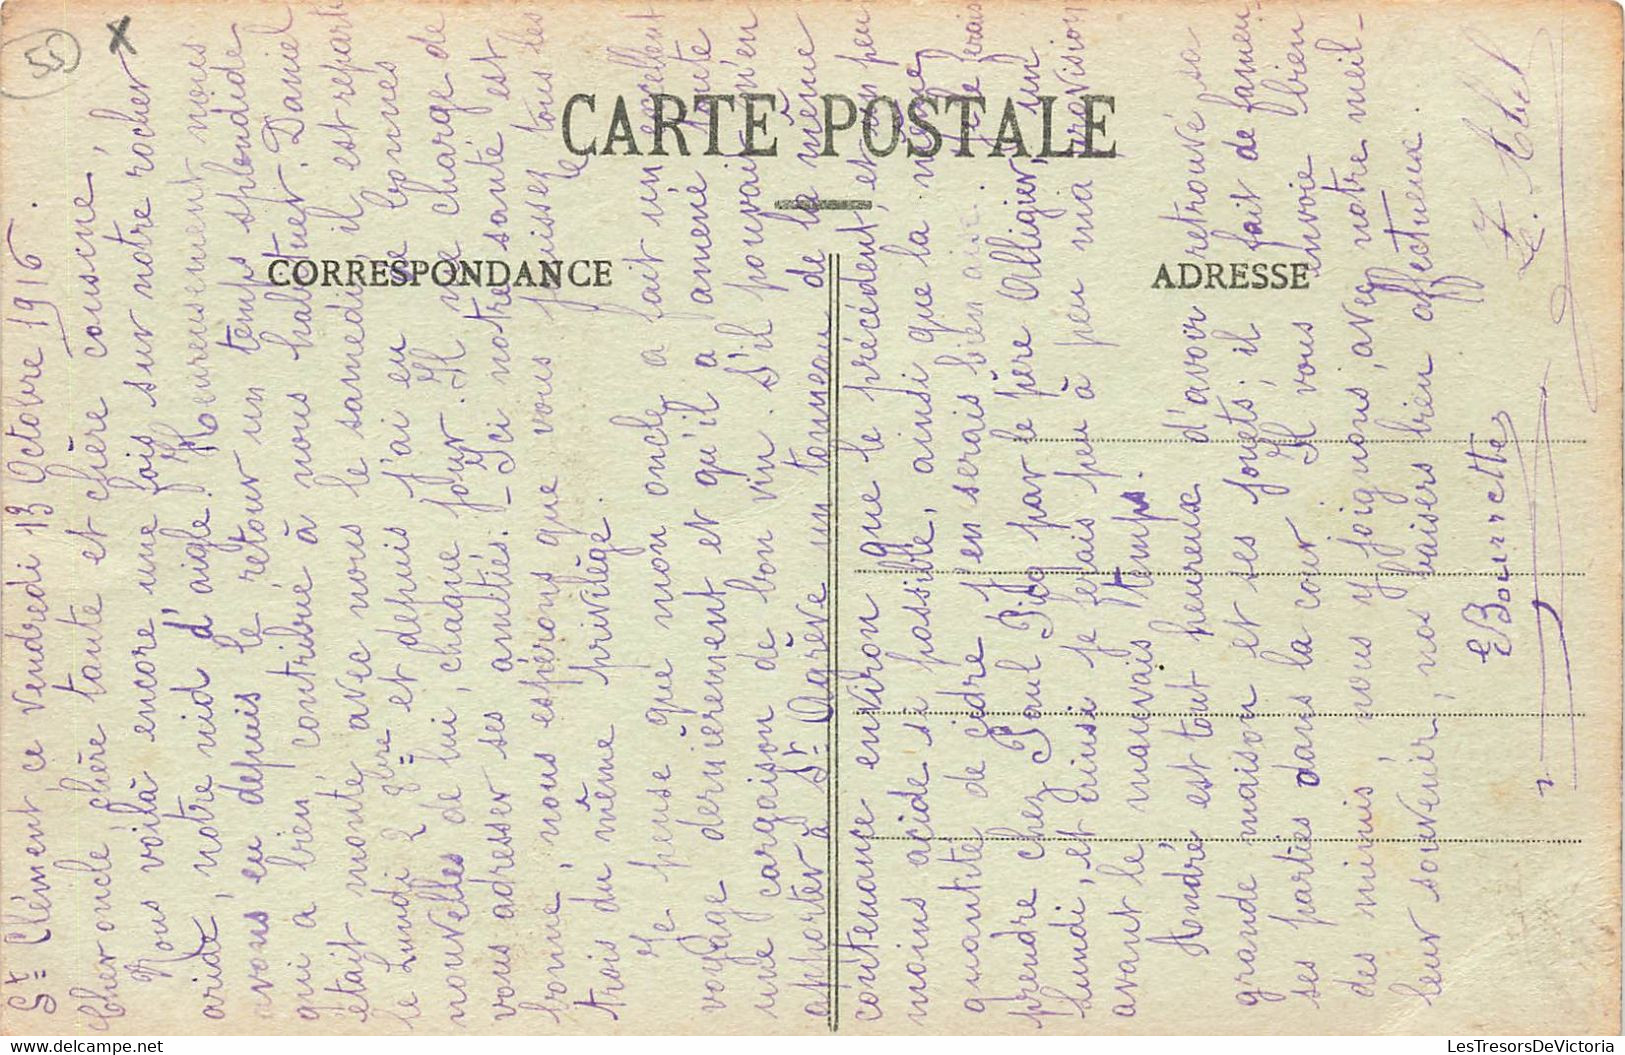 55
CARTE POSTALE
CORRESPONDANCE
ADRESSE
St Clément ce Vendredi 13 Octobre 1916.
Cher oncle, chère tante et chère cousine,
Nous voilà encore une fois sur notre rocher
aride, notre nid d'aigle. Heureusement nous
avons eu depuis le retour un temps splendide
qui a bien contribué à nous habituer. Daniel
était monté avec nous le samedi il est reparti
le Lundi 2 8bre et depuis j'ai eu de bonnes
nouvelles de lui, chaque jour. Il me charge de
vous adresser ses amitiés. - Ici notre santé est
bonne, nous espérons que vous jouissez tous les
trois du même privilège.
Je pense que mon oncle a fait un excellent
voyage dernièrement et qu'il a amené toute
une cargaison de bon vin. S'il pouvait m'en
apporter à St Agrève un tonneau de la même
contenance environ que le précédent, et un peu
moins acide si possible, ainsi que la même
quantité de cidre j'en serais bien aise. Je le ferais
prendre chez Paul Picq par le père Alligier, un
Lundi, et ainsi je ferais peu à peu ma provision
avant le mauvais temps.
André est tout heureux d'avoir retrouvé sa
grande maison et ses jouets; il fait de fameu-
ses parties dans la cour. Il vous envoie bien
des mimis nous y joignons, avec notre meil-
leur souvenir, nos baisers bien affectueux.
EBourrette